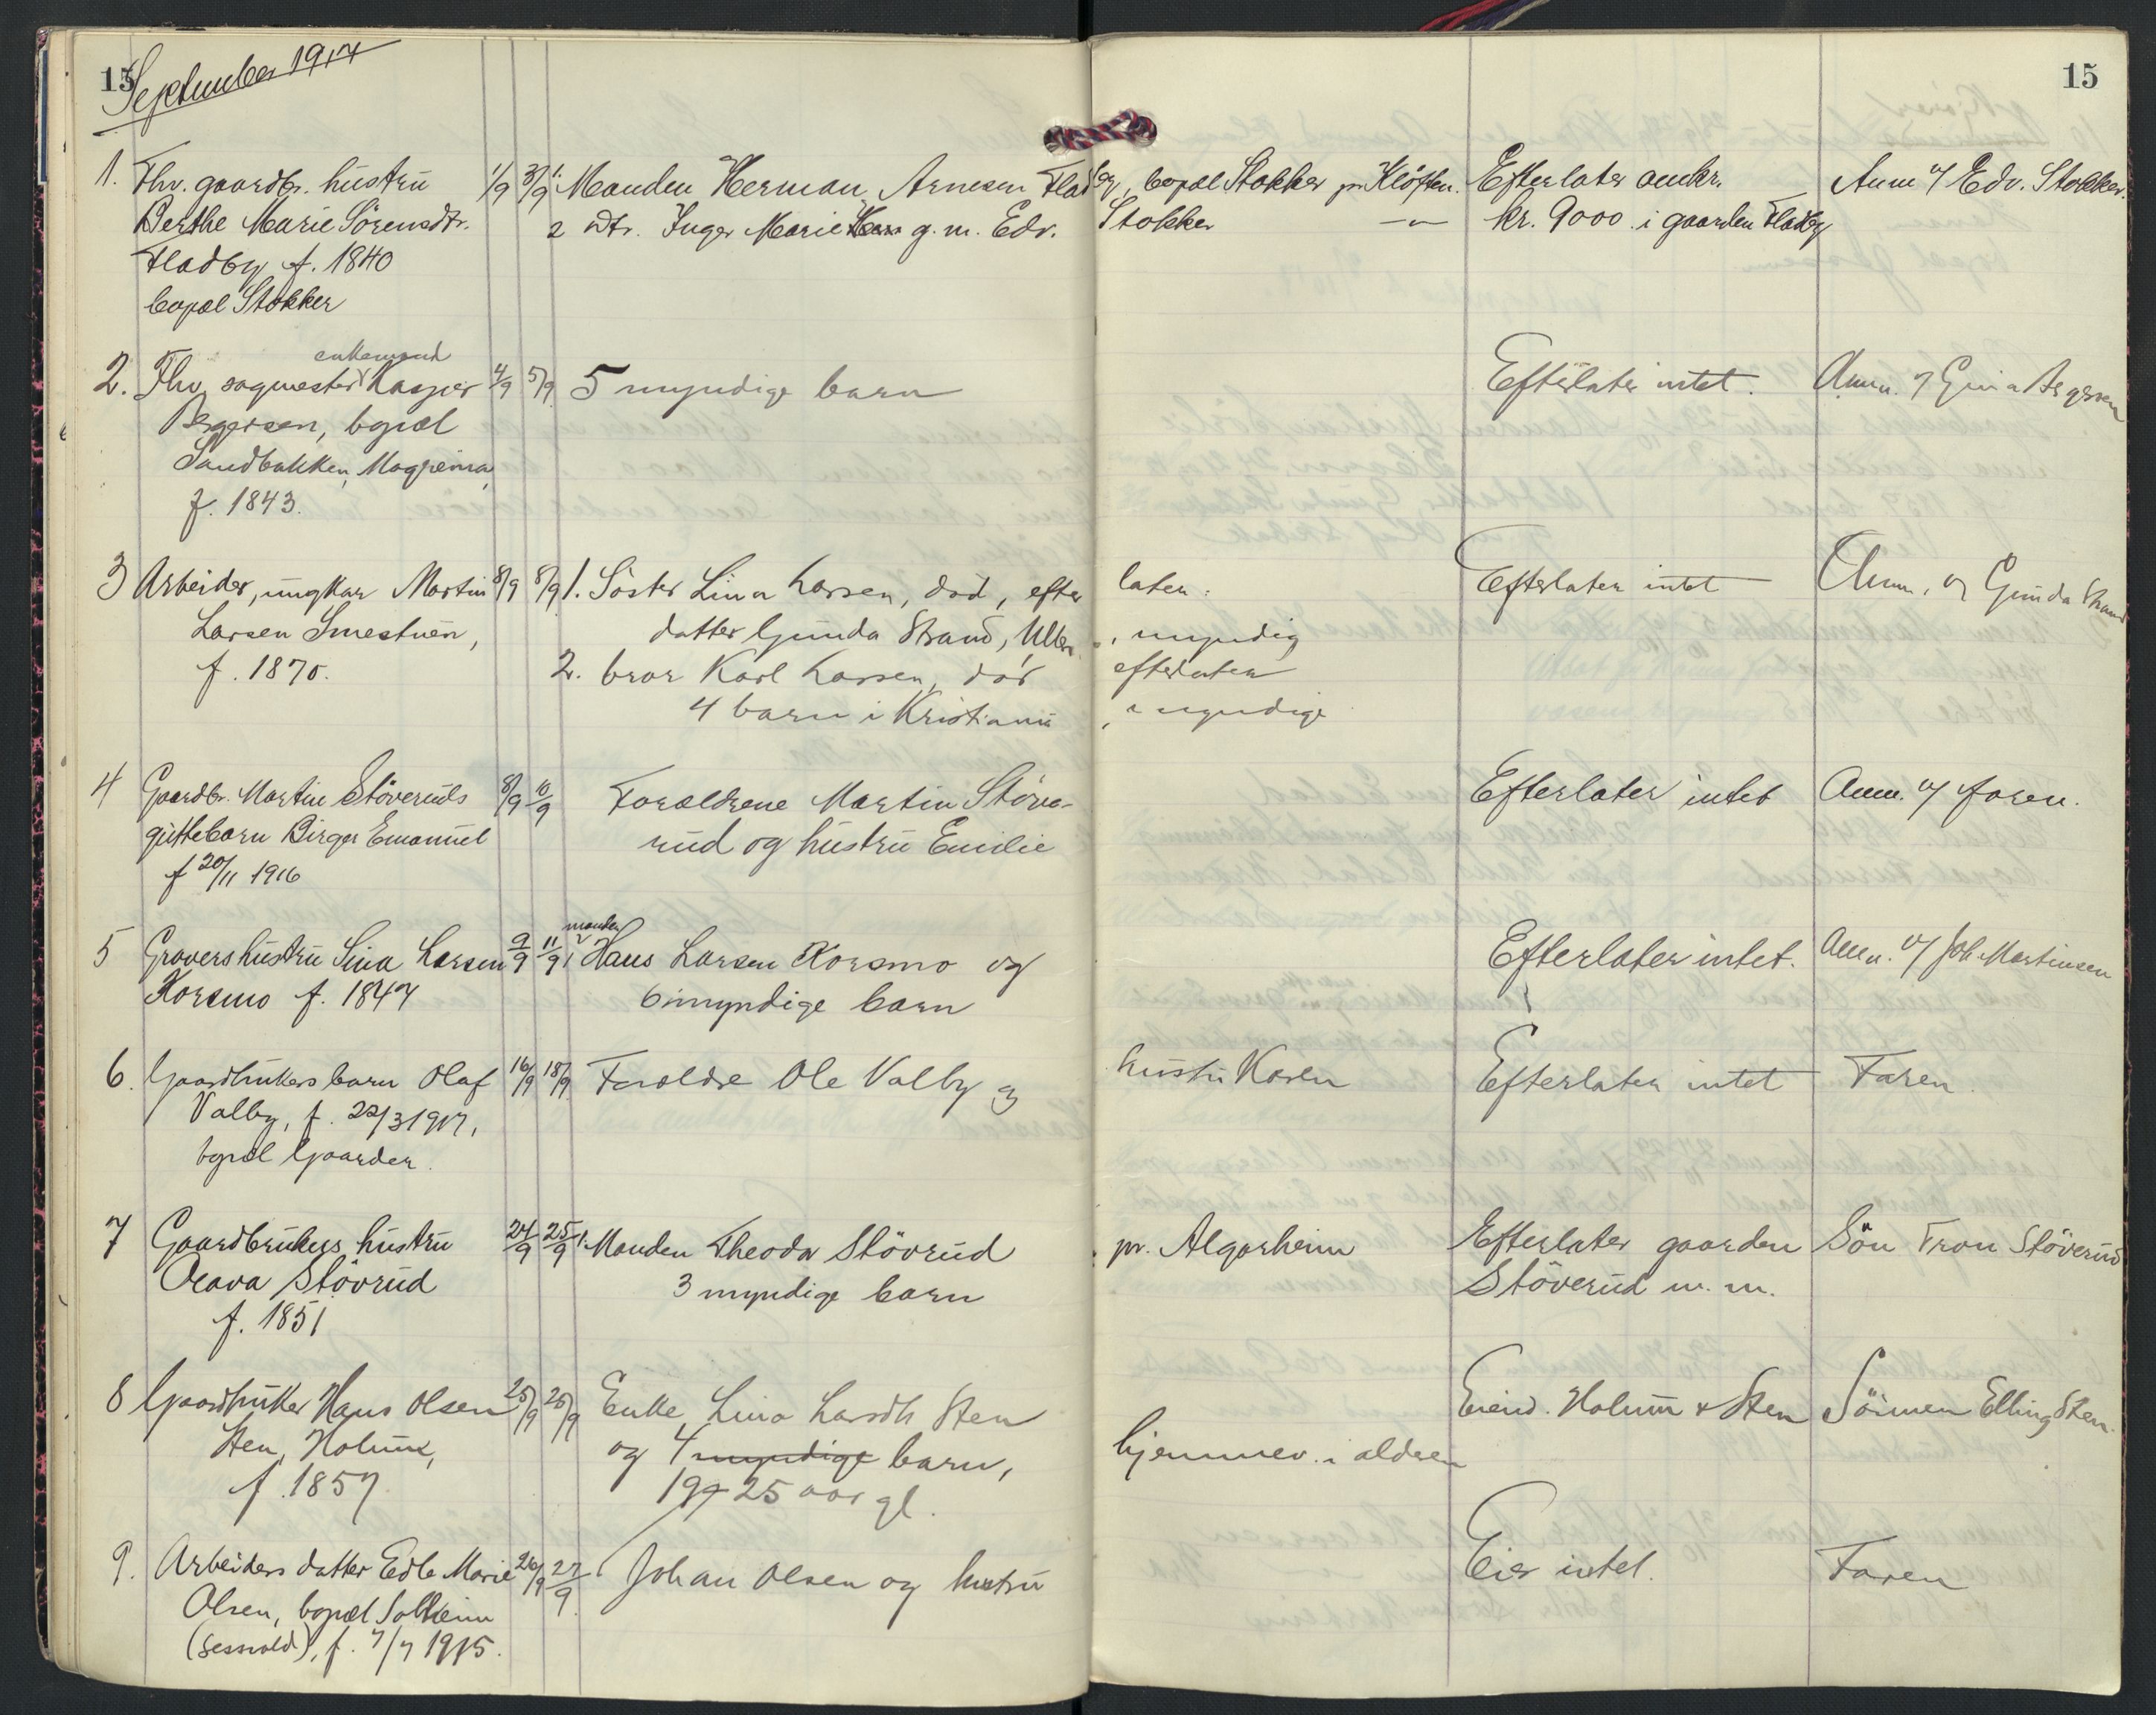 15
September 1917
15
1. Fhv. gaardbr. hustru 1/9 3/9 1. Manden Herman Arnesen Fladby, bopæl Stokker pr Kløften. Efterlater omkr. Anm. af Edv. Stokker.
Berthe Marie Sörensdtr. 2 Dtr. Inger Marie g. m. Edv. Stokker —„— kr. 9000 i gaarden Fladby
Fladby f. 1840
bopæl Stokker
enkemand
2. Fhv. sagmester Kasper 4/9 5/9 5 myndige barn Efterlater intet. Anm. af Gina Bergersen
Bergersen, bopæl
Sandbakken, Mogreina,
f. 1843.
3 Arbeider, ungkar Martin 8/9 8/9 1. Söster Lina Larsen, död, efterlater: Efterlater intet Anm. av Gunda Strand
Larsen Smestuen, datter Gunda Strand, , myndig
f. 1870. 2. bror Karl Larsen, död efterlater
4 barn i Kristiania, myndige
4 Gaardbr. Martin Støveruds 8/9 10/9 Forældrene Martin Støve- Efterlater intet Anm. af faren.
guttebarn Birger Emanuel rud og hustru Emilie
f 20/11 1916
manden
5 Gravers hustru Lina Larsen 9/9 11/9 1 Hans Larsen Korsmo og Efterlater intet. Anm. af Joh. Martinsen
Korsmo f. 1847 6 myndige barn
6. Gaardbrukers barn Olaf 16/9 18/9 Forældre Ole Valby og hustru Karen Efterlater intet Faren.
Valby, f. 22/3 1917,
bopæl Gaarder.
7 Gaardbrukers hustru 24/9 25/9 1. Manden Theodor Stövrud pr. Algarheim Efterlater gaarden Sön Tron Stöverud
Olava Stövrud 3 myndige barn Stöverud m. m.
f. 1851
8 Gaardbruker Hans Olsen 25/9 26/9 Enke Lina Larsdtr Sten Eiend. Holum & Sten Sönnen Elling Sten.
Sten, Holum, og 4 myndige barn, hjemmev. i alderen
f. 1857 19-25 aar gl.
9. Arbeiders datter Edle Marie 26/9 27/9 Johan Olsen og hustru Eier intet. Faren
Olsen, bopæl Solheim
(Jessvold), f. 7/7 1915.